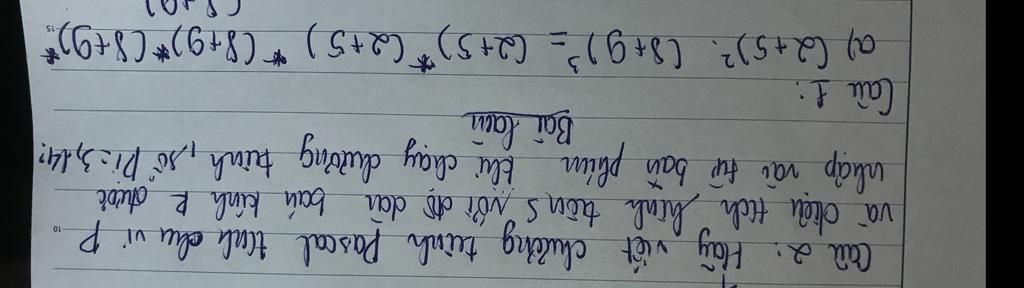 Câu 2: Hãy viết chương trình Pascal tính chu vi P
và diện tích hình tròn S với độ dài bán kính R được
nhập vào từ bàn phím khi chạy chương trình, số Pi = 3,14.
Bài làm
Câu 1:
a) (2+5)². (8+9)³ = (2+5)*(2+5)*(8+9)*(8+9)*
(8+9)